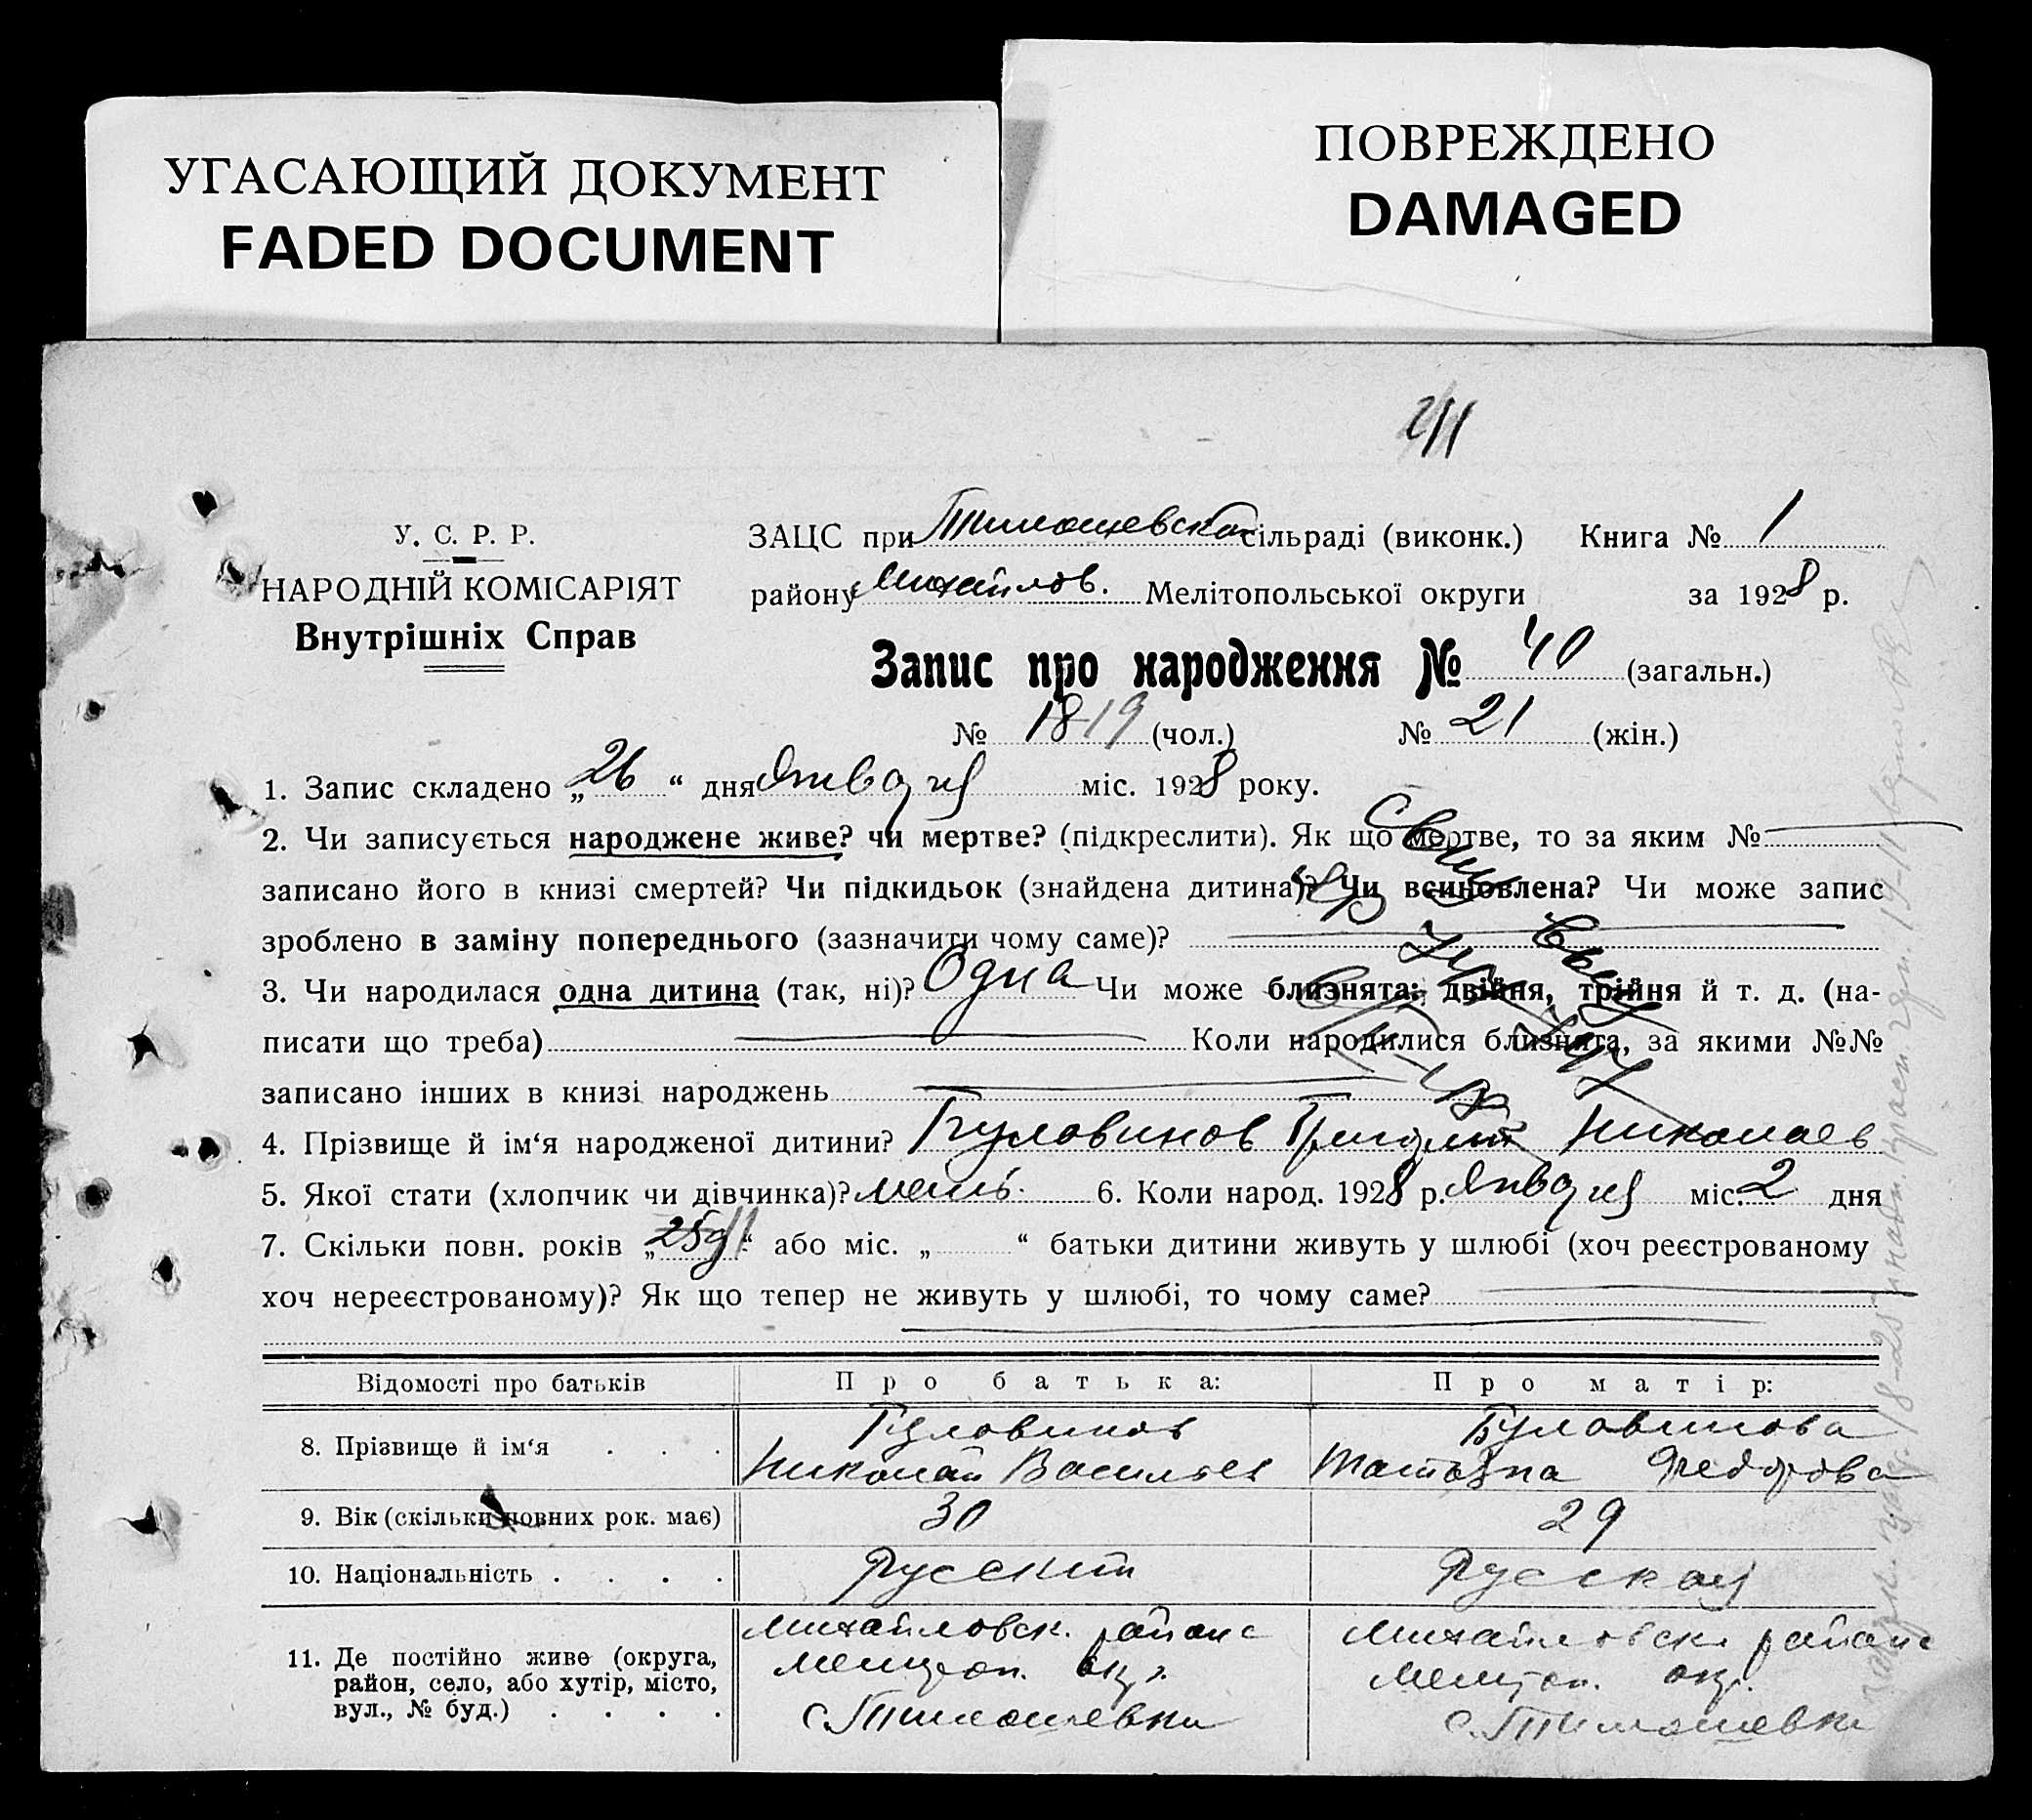 УГАСАЮЩИЙ ДОКУМЕНТ
FADED DOCUMENT
ПОВРЕЖДЕНО
DAMAGED
У. С. Р. Р.
НАРОДНІЙ КОМІСАРІЯТ
Внутрішніх Справ
ЗАЦС при Тимошевской сільраді (виконк.) Книга № 1
району Михайлов. Мелітопольської округи за 1928 р.
Запис про народження № 40 (загальн.)
№ 18-19 (чол.) № 21 (жін.)
1. Запис складено „26“ дня января міс. 1928 року.
2. Чи записується народжене живе? чи мертве? (підкреслити). Як що мертве, то за яким №
записано його в книзі смертей? Чи підкидьок (знайдена дитина)? Чи всиновлена? Чи може запис
зроблено в заміну попереднього (зазначити чому саме)?
3. Чи народилася одна дитина (так, ні)? Одна Чи може близнята: двійня, трійня й т. д. (на-
писати що треба) Коли народилися близнята, за якими №№
записано інших в книзі народжень
4. Прізвище й ім‘я народженої дитини? Буловинов Григорий Николаев
5. Якої стати (хлопчик чи дівчинка)? маль. 6. Коли народ. 1928 р. января міс. 2 дня
7. Скільки повн. років „ “ або міс. „ “ батьки дитини живуть у шлюбі (хоч реєстрованому
хоч нереєстрованому)? Як що тепер не живуть у шлюбі, то чому саме?
Відомості про батьків Про батька: Про матір:
8. Прізвище й ім‘я . . . Буловинов Николай Васильев Буловинова Татьяна Федорова
9. Вік (скільки повних рок. має) 30 29
10. Національність . . . . Русский Русская
11. Де постійно живе (округа, район, село, або хутір, місто, вул., № буд.) . . . .
Михайловск. района Мелитоп. окр. с. Тимошевки
Михайловск. района Мелитоп. окр. с. Тимошевки